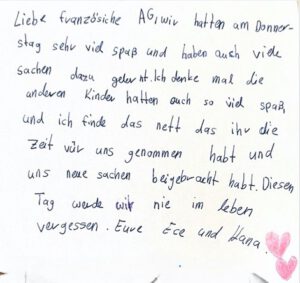 Liebe französiche AG, wir hatten am Donner-
stag sehr viel spaß und haben auch viele
sachen dazu gelernt. Ich denke mal die
anderen Kinder hatten auch so viel spaß,
und ich finde das nett das ihr die
Zeit vür uns genommen habt und
uns neue sachen beigebracht habt. Diesen
Tag werde wir nie im leben
vergessen. Eure Ece und Hana.